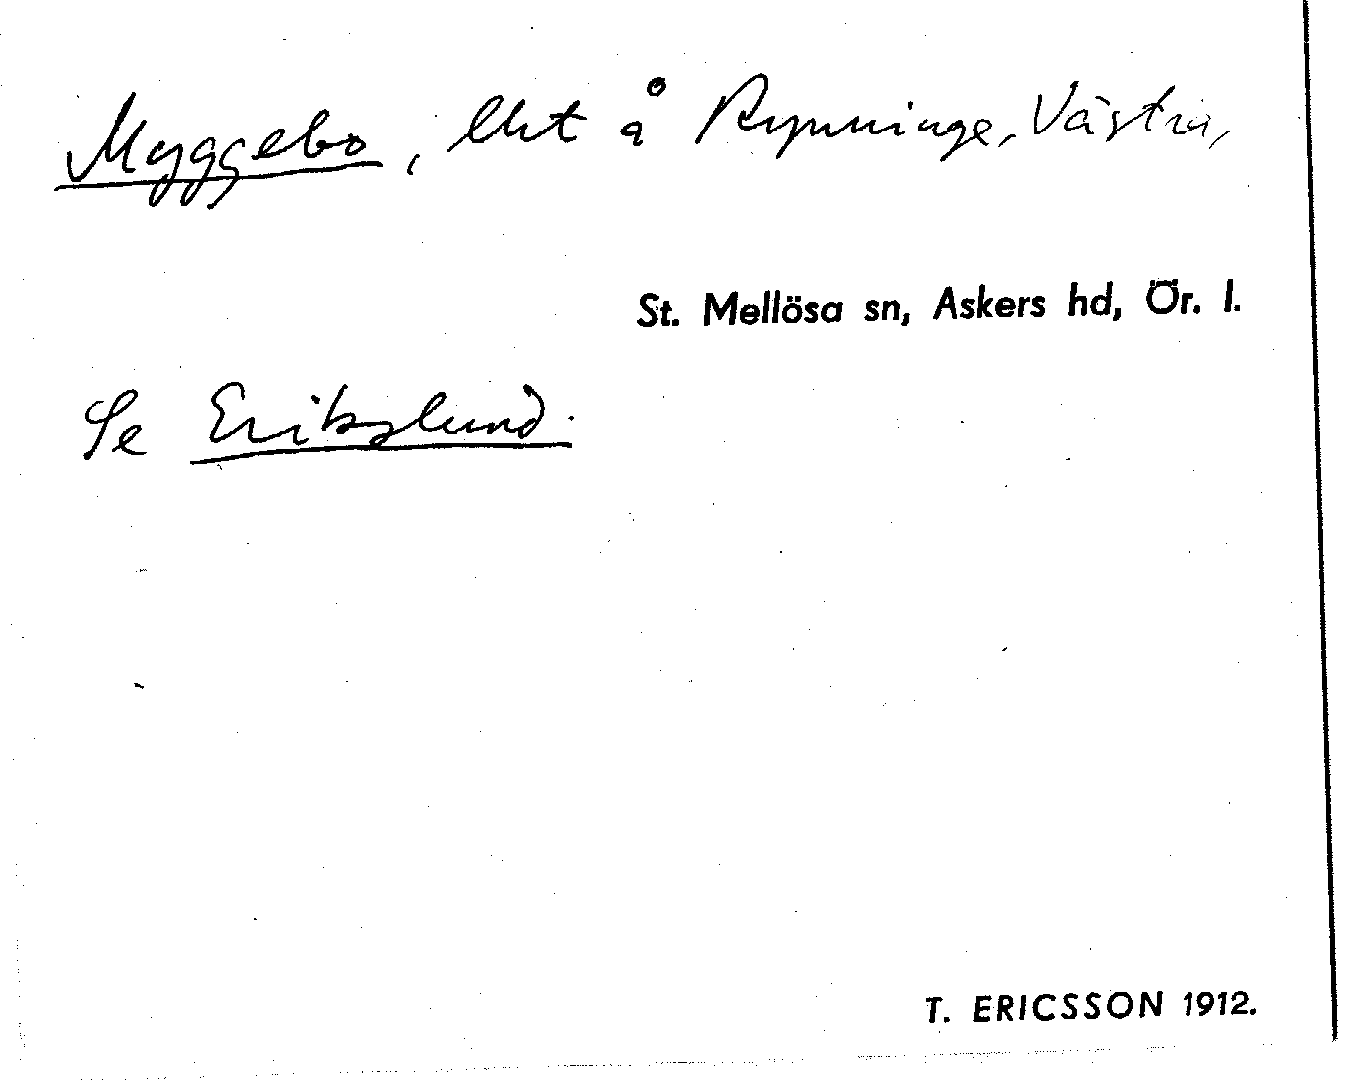 Myggebo, lht å Rynninge, Västra,
St. Mellösa sn, Askers hd, Ör. l.
Se Erikslund.
T. ERICSSON 1912.